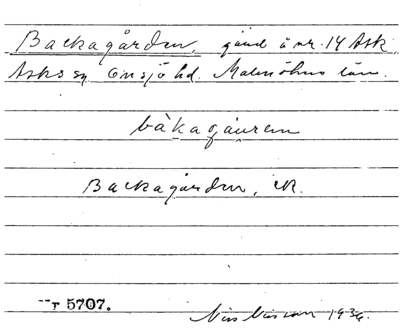 Backagården, gård å nr. 14 Ask
Asks sn Onsjö hd. Malmöhus län.
bàkagåuren
Backagården, ck.
Nr 5707.
Nils Nilsson 1936.